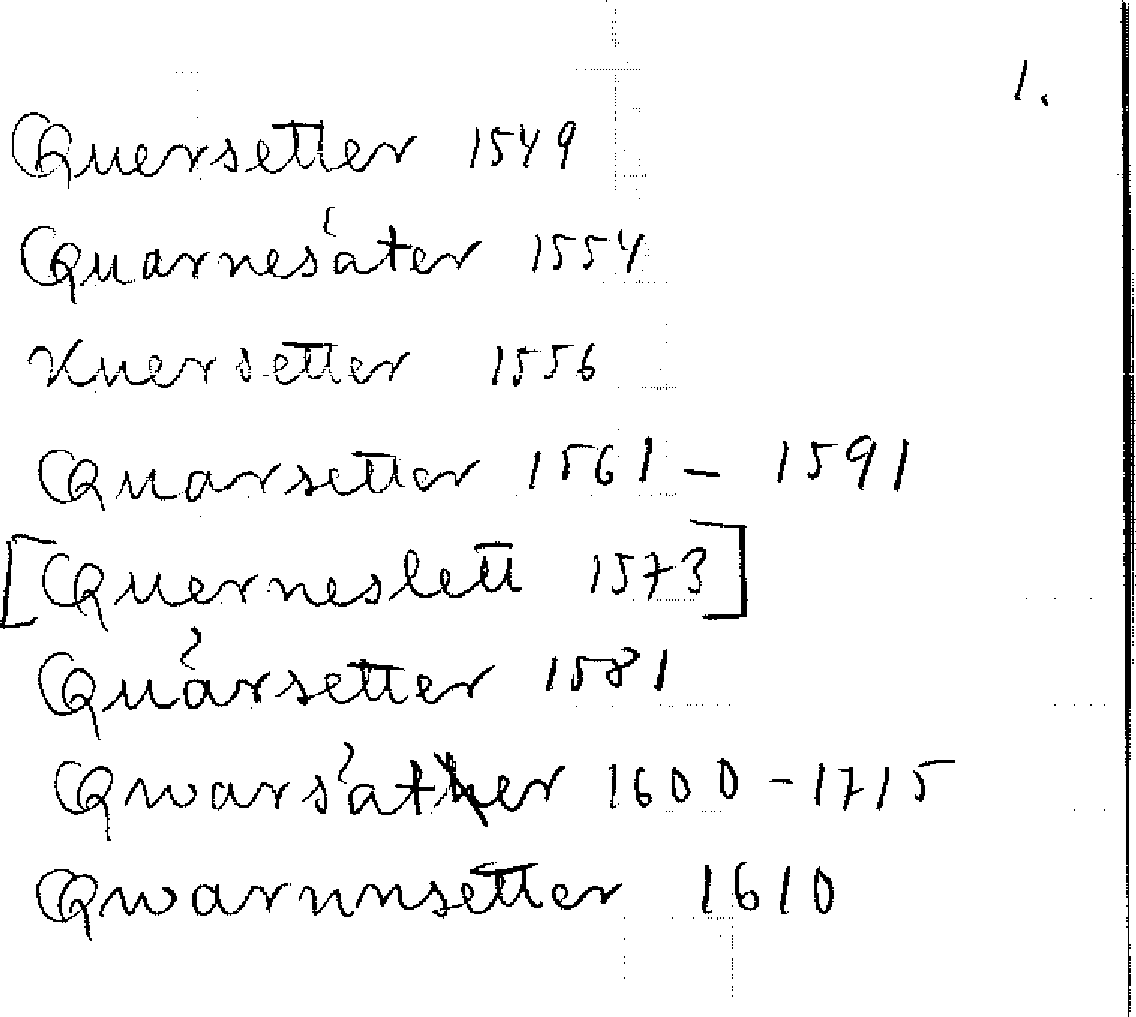 1.
Quersetter 1549
Quarnesäter 1554
Knersetter 1556
Quarsetter 1561 – 1591
[Querneslett 1573]
Quärsetter 1581
Qwarsäther 1600-1715
Qwarnnsetter 1610